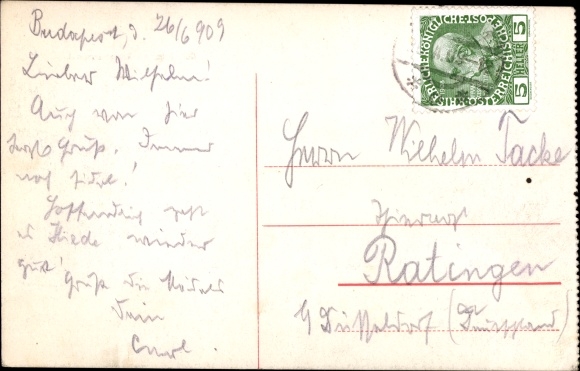 Budapest, d. 26/6 909
Lieber Wilhelm!
Auch von hier
herzl. Gruß. Immer
noch fidel!
Hoffentlich geht
es Heede wieder
gut!
Gruß die Mädels
Dein
Carl.
KAISERLICHE KÖNIGLICHE POST
ÖSTERREICHISCHE
5 HELLER 5
Herrn Wilhelm Tacke
Ratingen
b/ Düsseldorf (Deutschland)